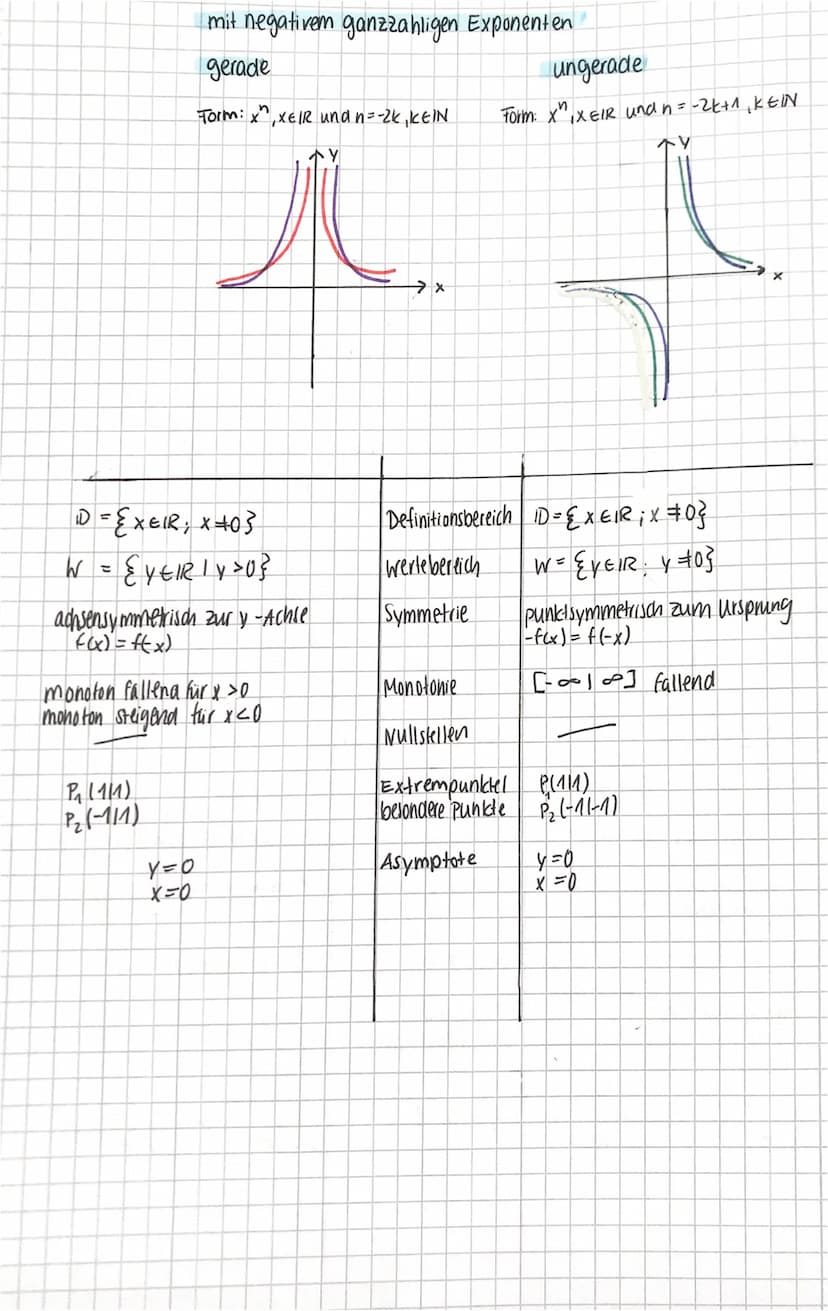 mit negativem ganzzahligen Exponenten
gerade
ungerade
Form: xⁿ, x∈ℝ und n=-2k, k∈ℕ
Form: xⁿ, x∈ℝ und n=-2k+1, k∈ℕ
y
x
y
x
D = {x∈ℝ; x≠0}
Definitionsbereich
D={x∈ℝ; x≠0}
W = {y∈ℝ | y>0}
Wertebereich
W = {y∈ℝ; y≠0}
achsensymmetrisch zur y-Achse
f(x)=f(-x)
Symmetrie
punktsymmetrisch zum Ursprung
-f(x)=f(-x)
monoton fallend für x>0
monoton steigend für x<0
Monotonie
[-∞|∞] fallend
Nullstellen
P₁(1|1)
P₂(-1|1)
Extrempunkte/
besondere Punkte
P₁(1|1)
P₂(-1|-1)
y=0
x=0
Asymptote
y=0
x=0